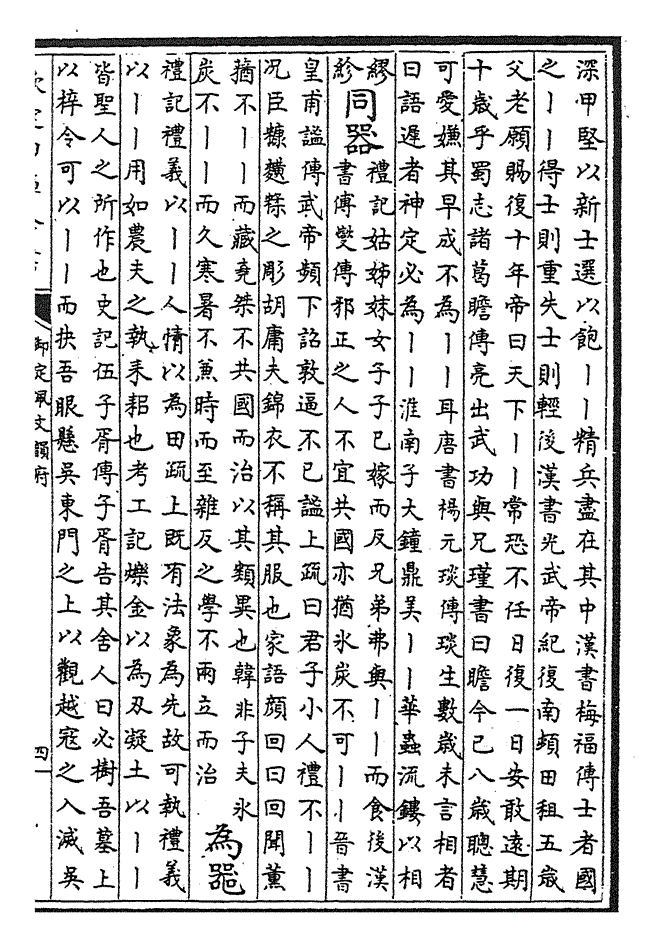 深甲堅以新士選以飽丨丨精兵盡在其中漢書梅福傳士者國
之丨丨得士則重失士則輕後漢書光武帝紀復南頓田租五歲
父老願賜復十年帝曰天下丨丨常恐不任日復一日安敢遠期
十歲乎蜀志諸葛瞻傳亮出武功與兄瑾書曰瞻今已八歲聰慧
可愛嫌其早成不為丨丨耳唐書楊元琰傳琰生數歲未言相者
曰語遲者神定必為丨丨淮南子大鐘鼎美丨丨華蟲流鏤以相
繆
紾
同器
禮記姑姊妹女子子已嫁而反兄弟弗與丨丨而食後漢
書傳爕傳邪正之人不宜共國亦猶氷炭不可丨丨晉書
皇甫謐傳武帝頻下詔敦逼不已謐上疏曰君子小人禮不丨丨
况臣糠䴬糅之彫胡庸夫錦衣不稱其服也家語顔回曰回聞薰
蕕不丨丨而藏堯桀不共國而治以其類異也韓非子夫氷
炭不丨丨而久寒暑不兼時而至雜反之學不兩立而治
為器
禮記禮義以丨丨人情以為田疏上既有法象為先故可執禮義
以丨丨用如農夫之執耒耜也考工記爍金以為刃凝土以丨丨
皆聖人之所作也史記伍子胥傳子胥告其舍人曰必樹吾墓上
以梓令可以丨丨而抉吾眼懸吳東門之上以觀越寇之入滅吳
御定佩文韻府